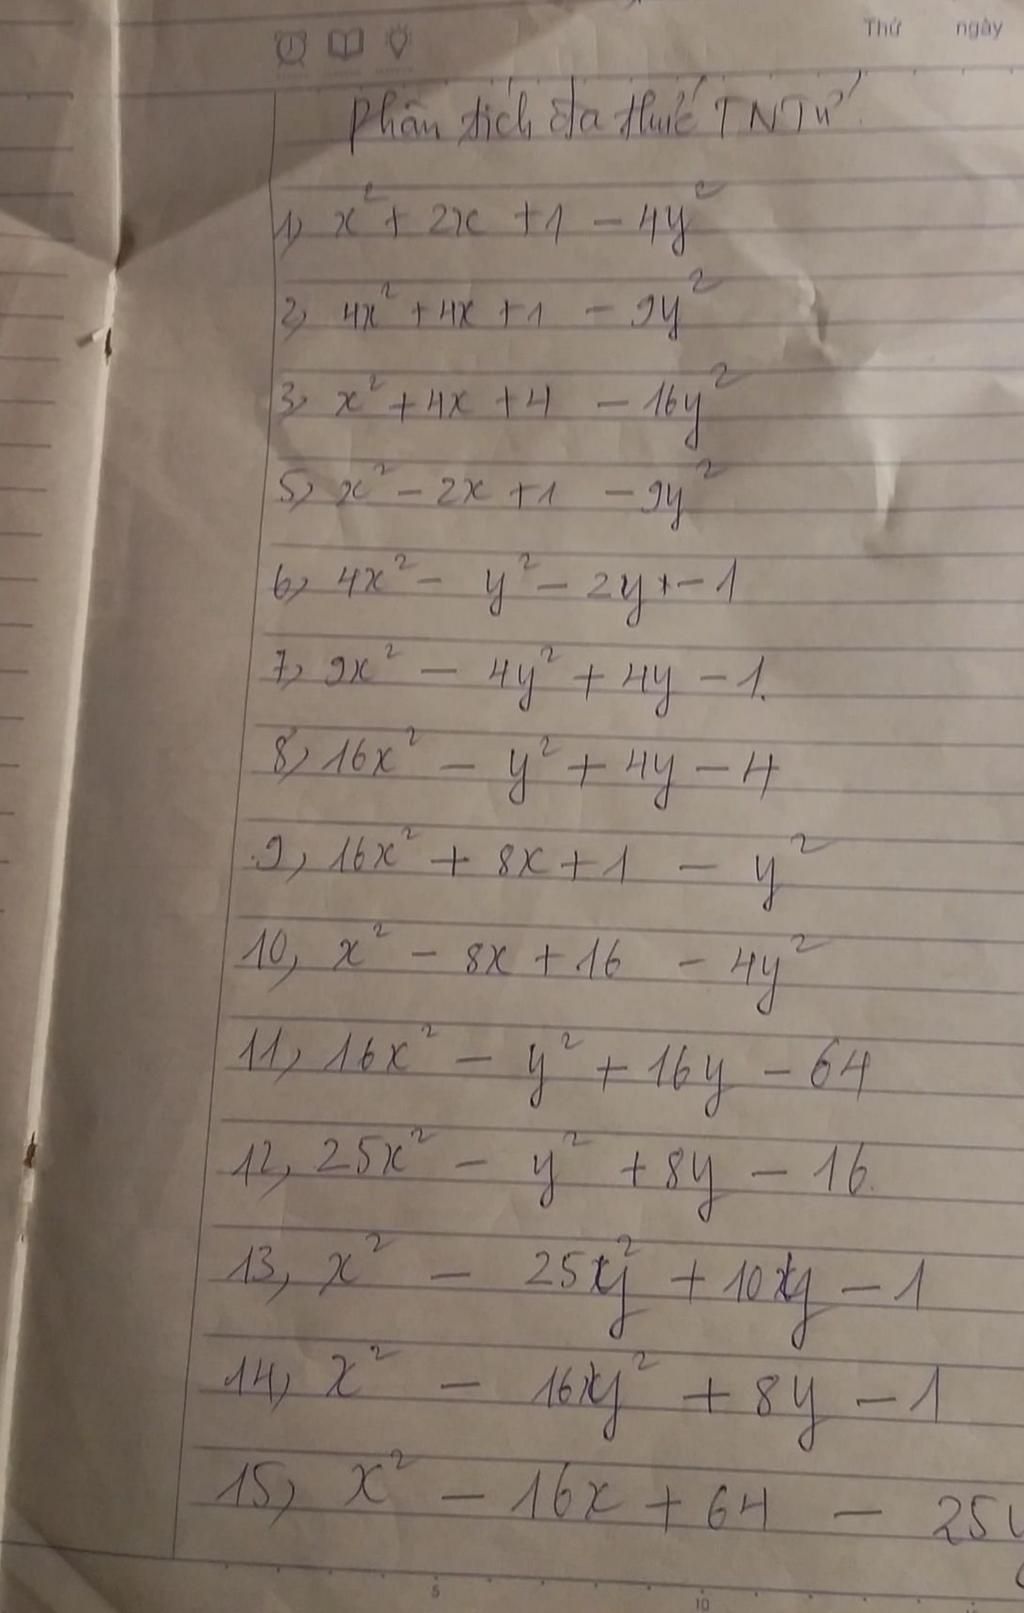 Thứ ngày
Phân tích đa thức TNTử
1, x² + 2x + 1 - 4y²
2, 4x² + 4x + 1 - 9y²
3, x² + 4x + 4 - 16y²
5, x² - 2x + 1 - 9y²
6, 4x² - y² - 2y - 1
7, 9x² - 4y² + 4y - 1.
8, 16x² - y² + 4y - 4
9, 16x² + 8x + 1 - y²
10, x² - 8x + 16 - 4y²
11, 16x² - y² + 16y - 64
12, 25x² - y² + 8y - 16.
13, x² - 25y² + 10y - 1
14, x² - 16y² + 8y - 1
15, x² - 16x + 64 - 25
5 10